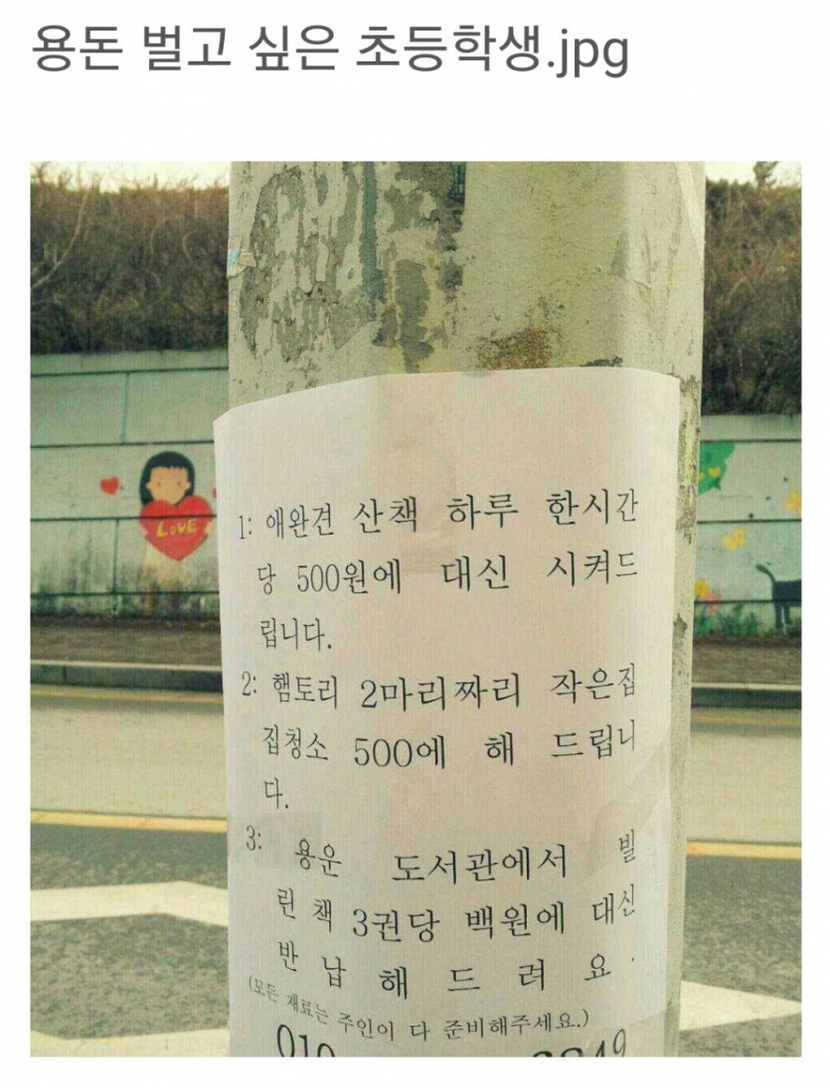 용돈 벌고 싶은 초등학생.jpg
LOVE
1: 애완견 산책 하루 한시간
당 500원에 대신 시켜드
립니다.
2: 햄토리 2마리짜리 작은집
집청소 500에 해 드립니
다.
3: 용운 도서관에서 빌
린 책 3권당 백원에 대신
반 납 해 드 려 요.
(모든 재료는 주인이 다 준비해주세요.)
010